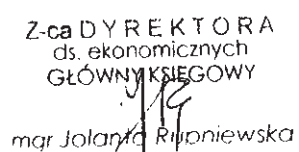 Z-ca DYREKTORA
ds. ekonomicznych
GŁÓWNY KSIĘGOWY
mgr Jolanta Rupniewska